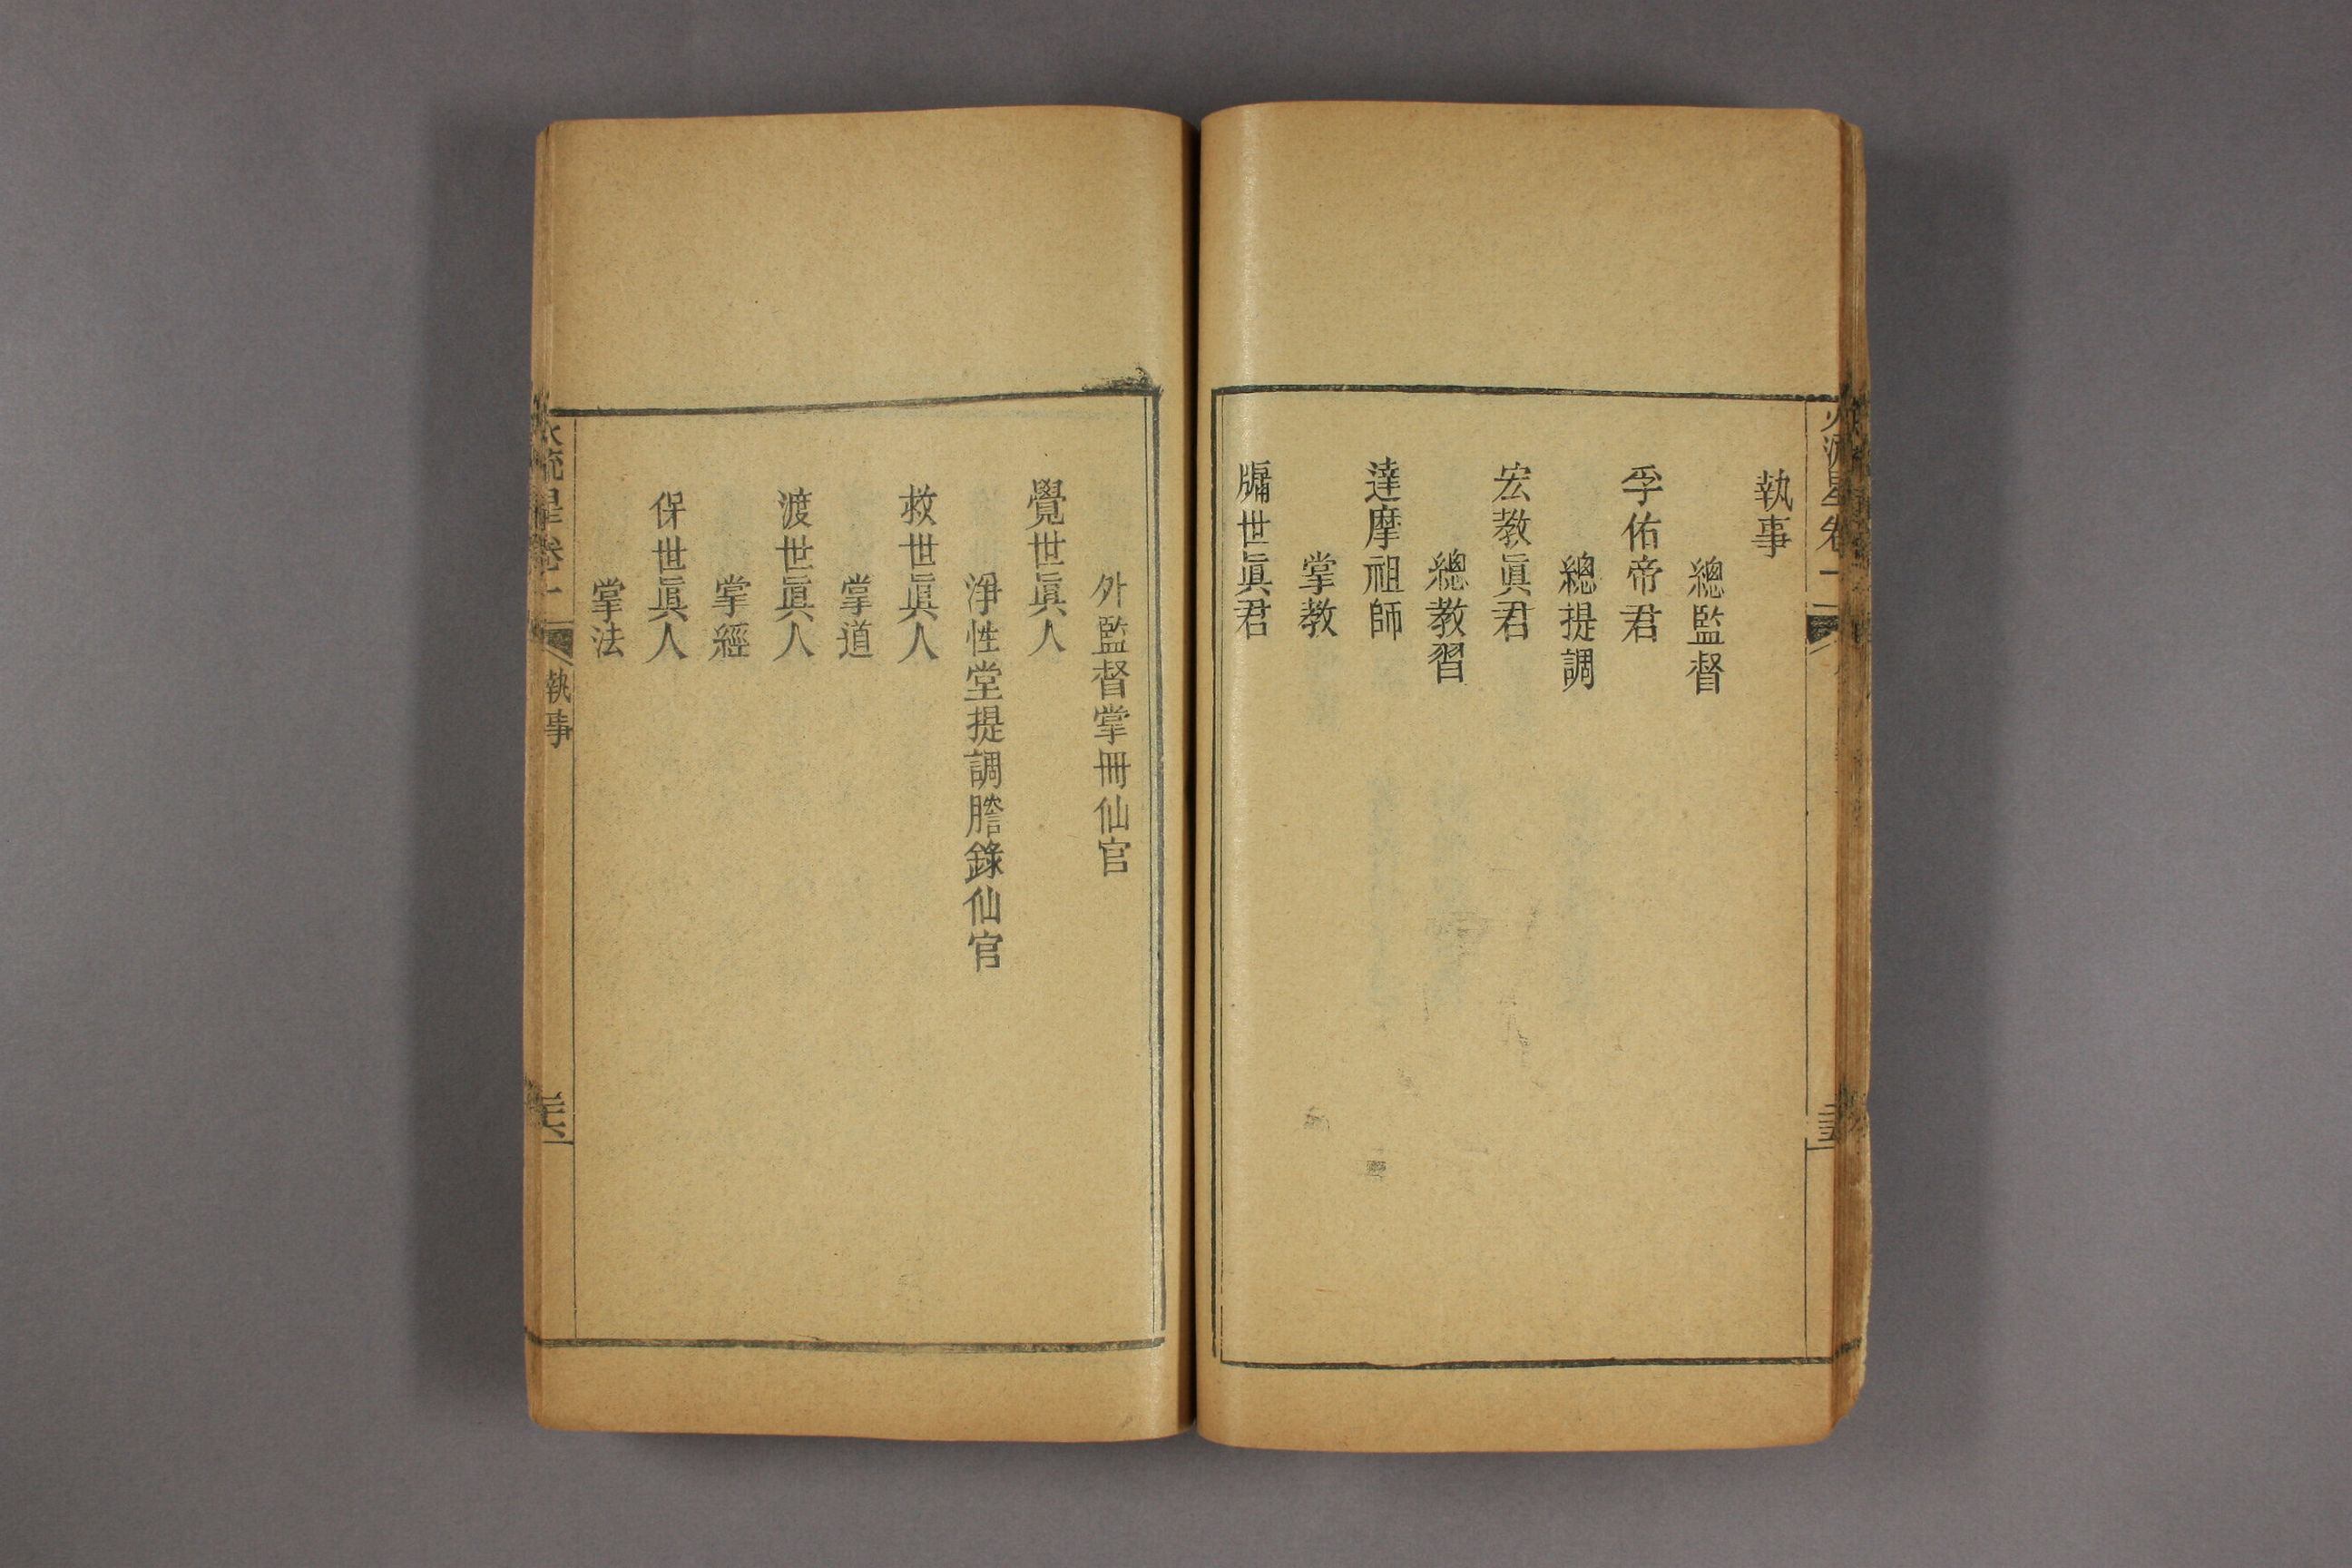 執事
總監督
孚佑帝君
總提調
宏教眞君
總教習
達摩祖師
掌教
牖世眞君
外監督掌冊仙官
覺世眞人
淨性堂提調謄錄仙官
救世眞人
掌道
渡世眞人
掌經
保世眞人
掌法
執事